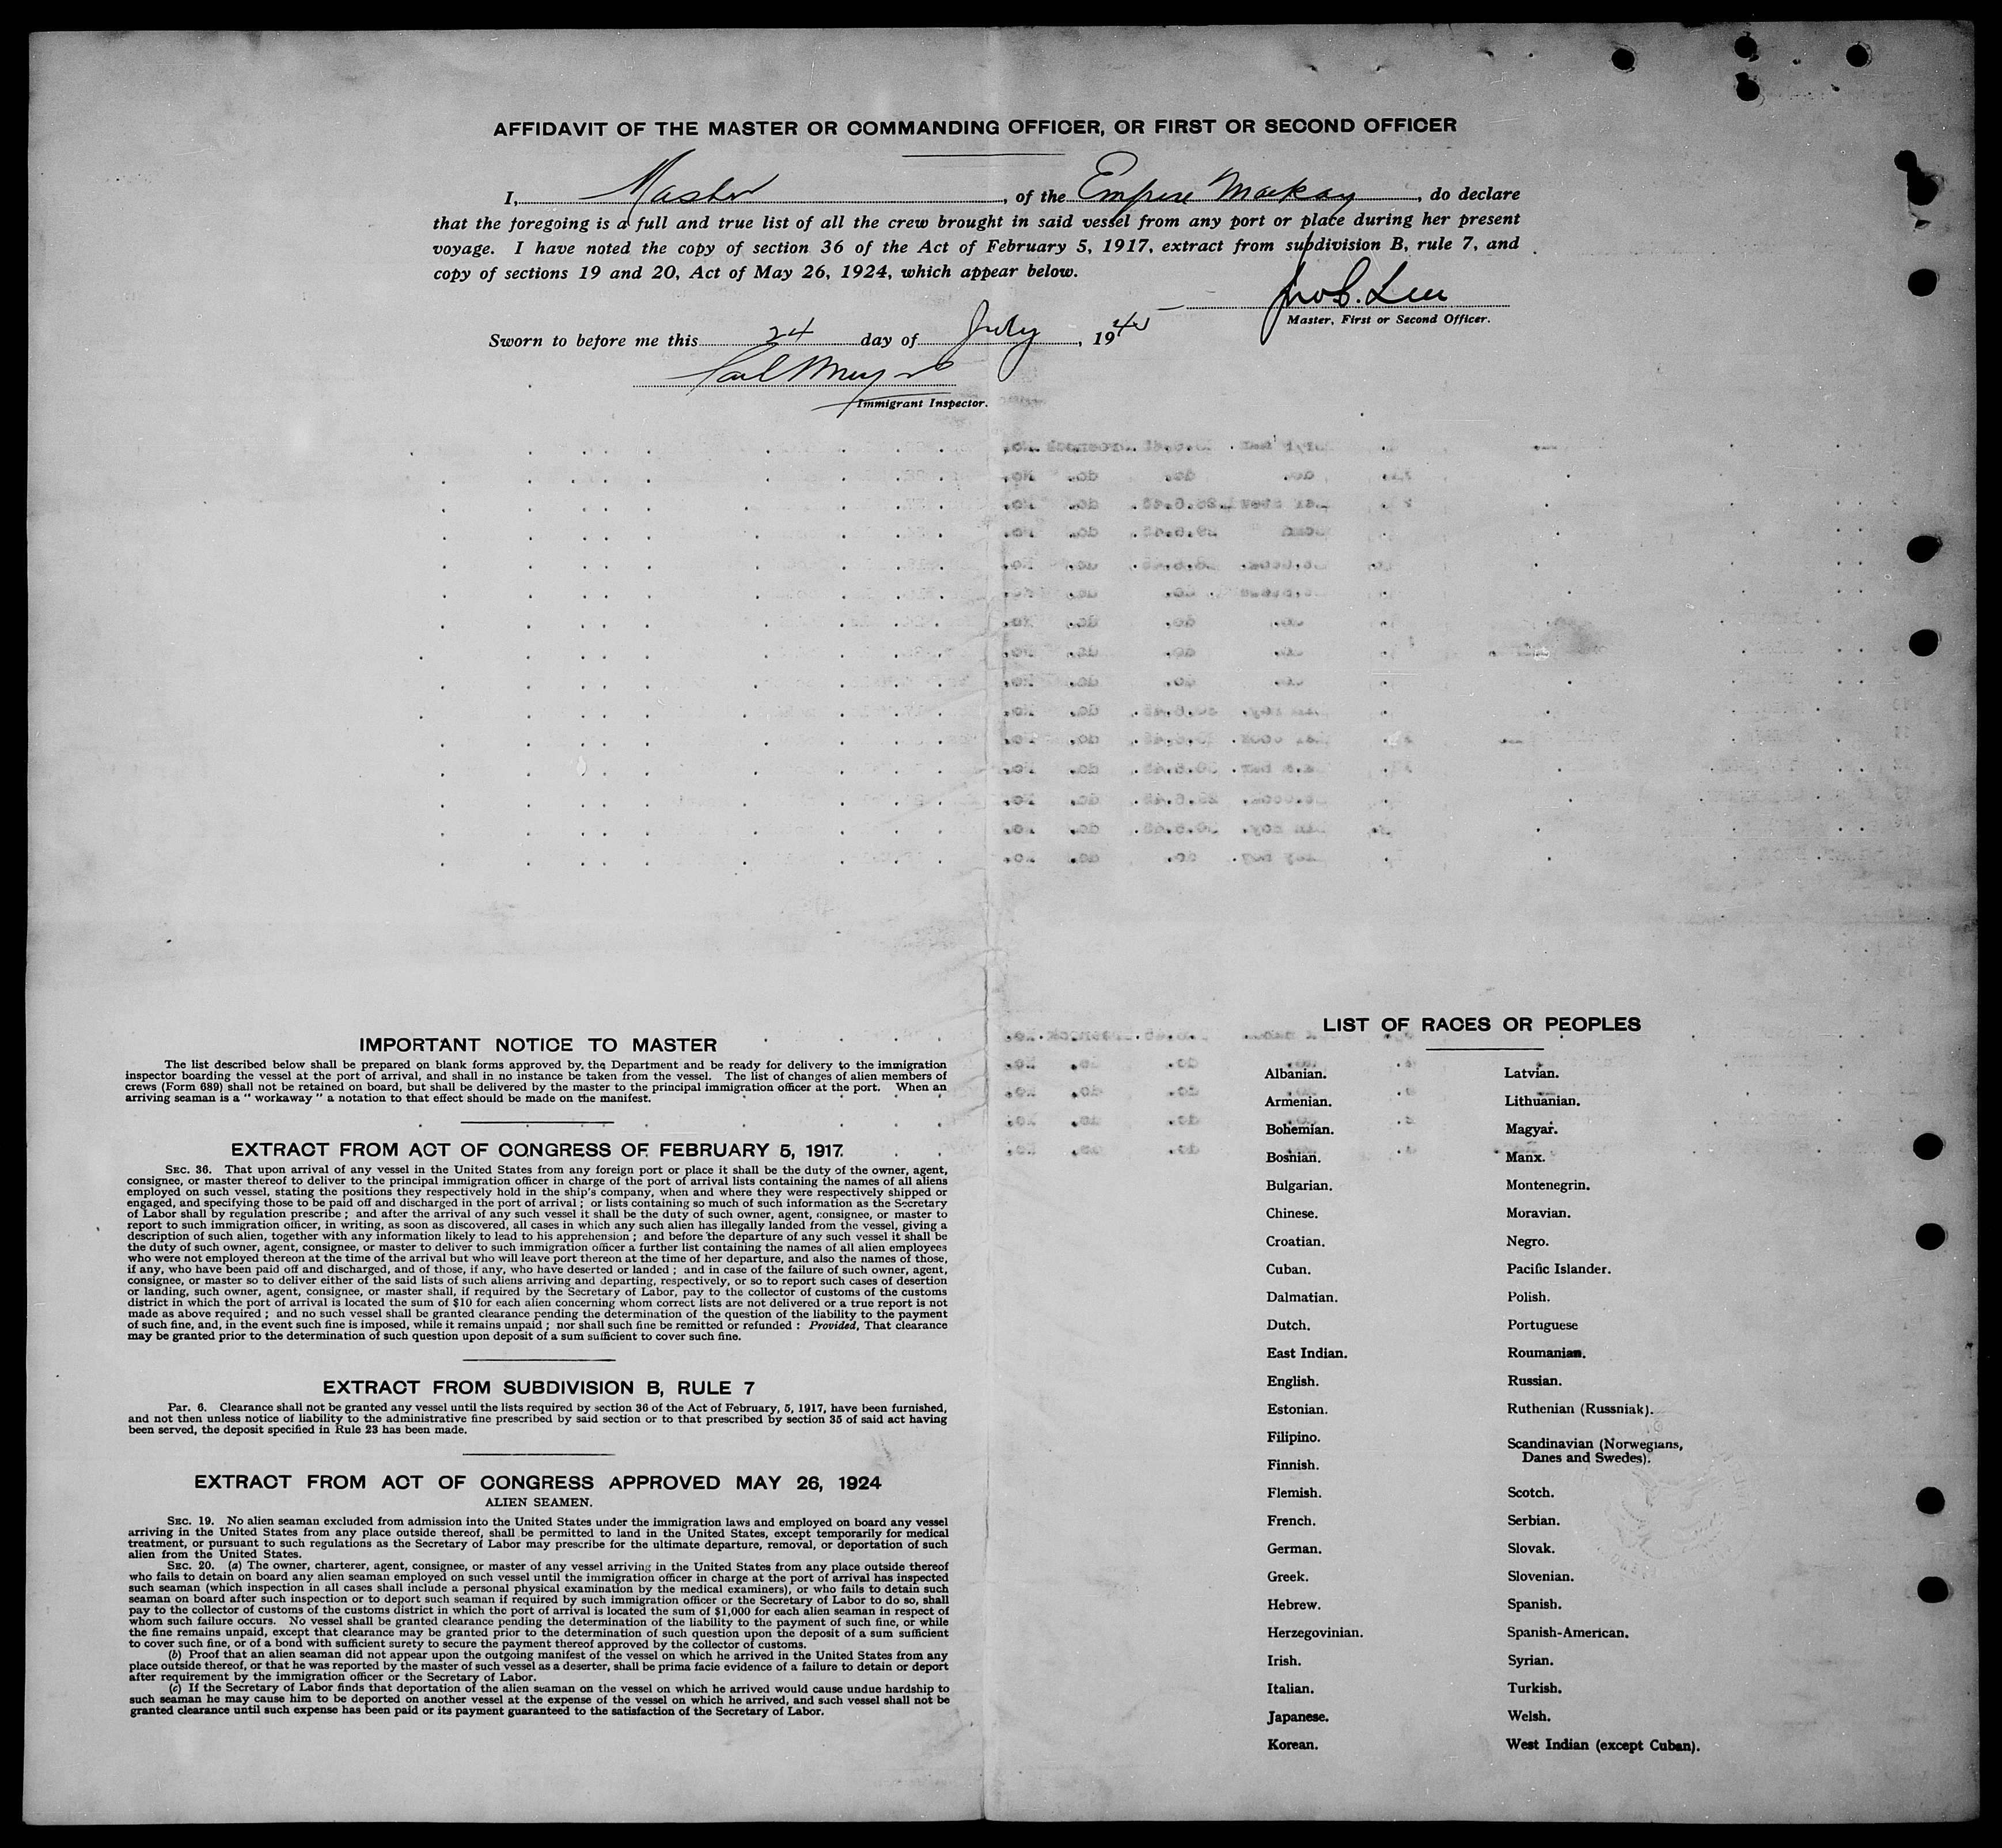 AFFIDAVIT OF THE MASTER OR COMMANDING OFFICER, OR FIRST OR SECOND OFFICER
I, Master, of the Empire Mackay, do declare
that the foregoing is a full and true list of all the crew brought in said vessel from any port or place during her present
voyage. I have noted the copy of section 36 of the Act of February 5, 1917, extract from subdivision B, rule 7, and
copy of sections 19 and 20, Act of May 26, 1924, which appear below.
Master, First or Second Officer.
Sworn to before me this 24 day of July, 19
Immigrant Inspector.
IMPORTANT NOTICE TO MASTER
The list described below shall be prepared on blank forms approved by the Department and be ready for delivery to the immigration
inspector boarding the vessel at the port of arrival, and shall in no instance be taken from the vessel. The list of changes of alien members of
crews (Form 689) shall not be retained on board, but shall be delivered by the master to the principal immigration officer at the port. When an
arriving seaman is a "workaway" a notation to that effect should be made on the manifest.
EXTRACT FROM ACT OF CONGRESS OF FEBRUARY 5, 1917.
SEC. 36. That upon arrival of any vessel in the United States from any foreign port or place it shall be the duty of the owner, agent,
consignee, or master thereof to deliver to the principal immigration officer in charge of the port of arrival lists containing the names of all aliens
employed on such vessel, stating the positions they respectively hold in the ship's company, when and where they were respectively shipped or
engaged, and specifying those to be paid off and discharged in the port of arrival; or lists containing so much of such information as the Secretary
of Labor shall by regulation prescribe; and after the arrival of any such vessel it shall be the duty of such owner, agent, consignee, or master to
report to such immigration officer, in writing, as soon as discovered, all cases in which any such alien has illegally landed from the vessel, giving a
description of such alien, together with any information likely to lead to his apprehension; and before the departure of any such vessel it shall be
the duty of such owner, agent, consignee, or master to deliver to such immigration officer a further list containing the names of all alien employees
who were not employed thereon at the time of the arrival but who will leave port thereon at the time of her departure, and also the names of those,
if any, who have been paid off and discharged, and of those, if any, who have deserted or landed; and in case of the failure of such owner, agent,
consignee, or master so to deliver either of the said lists of such aliens arriving and departing, respectively, or so to report such cases of desertion
or landing, such owner, agent, consignee, or master shall, if required by the Secretary of Labor, pay to the collector of customs of the customs
district in which the port of arrival is located the sum of $10 for each alien concerning whom correct lists are not delivered or a true report is not
made as above required; and no such vessel shall be granted clearance pending the determination of the question of the liability to the payment
of such fine, and, in the event such fine is imposed, while it remains unpaid; nor shall such fine be remitted or refunded: Provided, That clearance
may be granted prior to the determination of such question upon deposit of a sum sufficient to cover such fine.
EXTRACT FROM SUBDIVISION B, RULE 7
Par. 6. Clearance shall not be granted any vessel until the lists required by section 36 of the Act of February, 5, 1917, have been furnished,
and not then unless notice of liability to the administrative fine prescribed by said section or to that prescribed by section 35 of said act having
been served, the deposit specified in Rule 23 has been made.
EXTRACT FROM ACT OF CONGRESS APPROVED MAY 26, 1924
ALIEN SEAMEN.
SEC. 19. No alien seaman excluded from admission into the United States under the immigration laws and employed on board any vessel
arriving in the United States from any place outside thereof, shall be permitted to land in the United States, except temporarily for medical
treatment, or pursuant to such regulations as the Secretary of Labor may prescribe for the ultimate departure, removal, or deportation of such
alien from the United States.
SEC. 20. (a) The owner, charterer, agent, consignee, or master of any vessel arriving in the United States from any place outside thereof
who fails to detain on board any alien seaman employed on such vessel until the immigration officer in charge at the port of arrival has inspected
such seaman (which inspection in all cases shall include a personal physical examination by the medical examiners), or who fails to detain such
seaman on board after such inspection or to deport such seaman if required by such immigration officer or the Secretary of Labor to do so, shall
pay to the collector of customs of the customs district in which the port of arrival is located the sum of $1,000 for each alien seaman in respect of
whom such failure occurs. No vessel shall be granted clearance pending the determination of the liability to the payment of such fine, or while
the fine remains unpaid, except that clearance may be granted prior to the determination of such question upon the deposit of a sum sufficient
to cover such fine, or of a bond with sufficient surety to secure the payment thereof approved by the collector of customs.
(b) Proof that an alien seaman did not appear upon the outgoing manifest of the vessel on which he arrived in the United States from any
place outside thereof, or that he was reported by the master of such vessel as a deserter, shall be prima facie evidence of a failure to detain or deport
after requirement by the immigration officer or the Secretary of Labor.
(c) If the Secretary of Labor finds that deportation of the alien seaman on the vessel on which he arrived would cause undue hardship to
such seaman he may cause him to be deported on another vessel at the expense of the vessel on which he arrived, and such vessel shall not be
granted clearance until such expense has been paid or its payment guaranteed to the satisfaction of the Secretary of Labor.
LIST OF RACES OR PEOPLES
Albanian.
Armenian.
Bohemian.
Bosnian.
Bulgarian.
Chinese.
Croatian.
Cuban.
Dalmatian.
Dutch.
East Indian.
English.
Estonian.
Filipino.
Finnish.
Flemish.
French.
German.
Greek.
Hebrew.
Herzegovinian.
Irish.
Italian.
Japanese.
Korean.
Latvian.
Lithuanian.
Magyar.
Manx.
Montenegrin.
Moravian.
Negro.
Pacific Islander.
Polish.
Portuguese
Roumanian.
Russian.
Ruthenian (Russniak).
Scandinavian (Norwegians,
Danes and Swedes).
Scotch.
Serbian.
Slovak.
Slovenian.
Spanish.
Spanish-American.
Syrian.
Turkish.
Welsh.
West Indian (except Cuban).